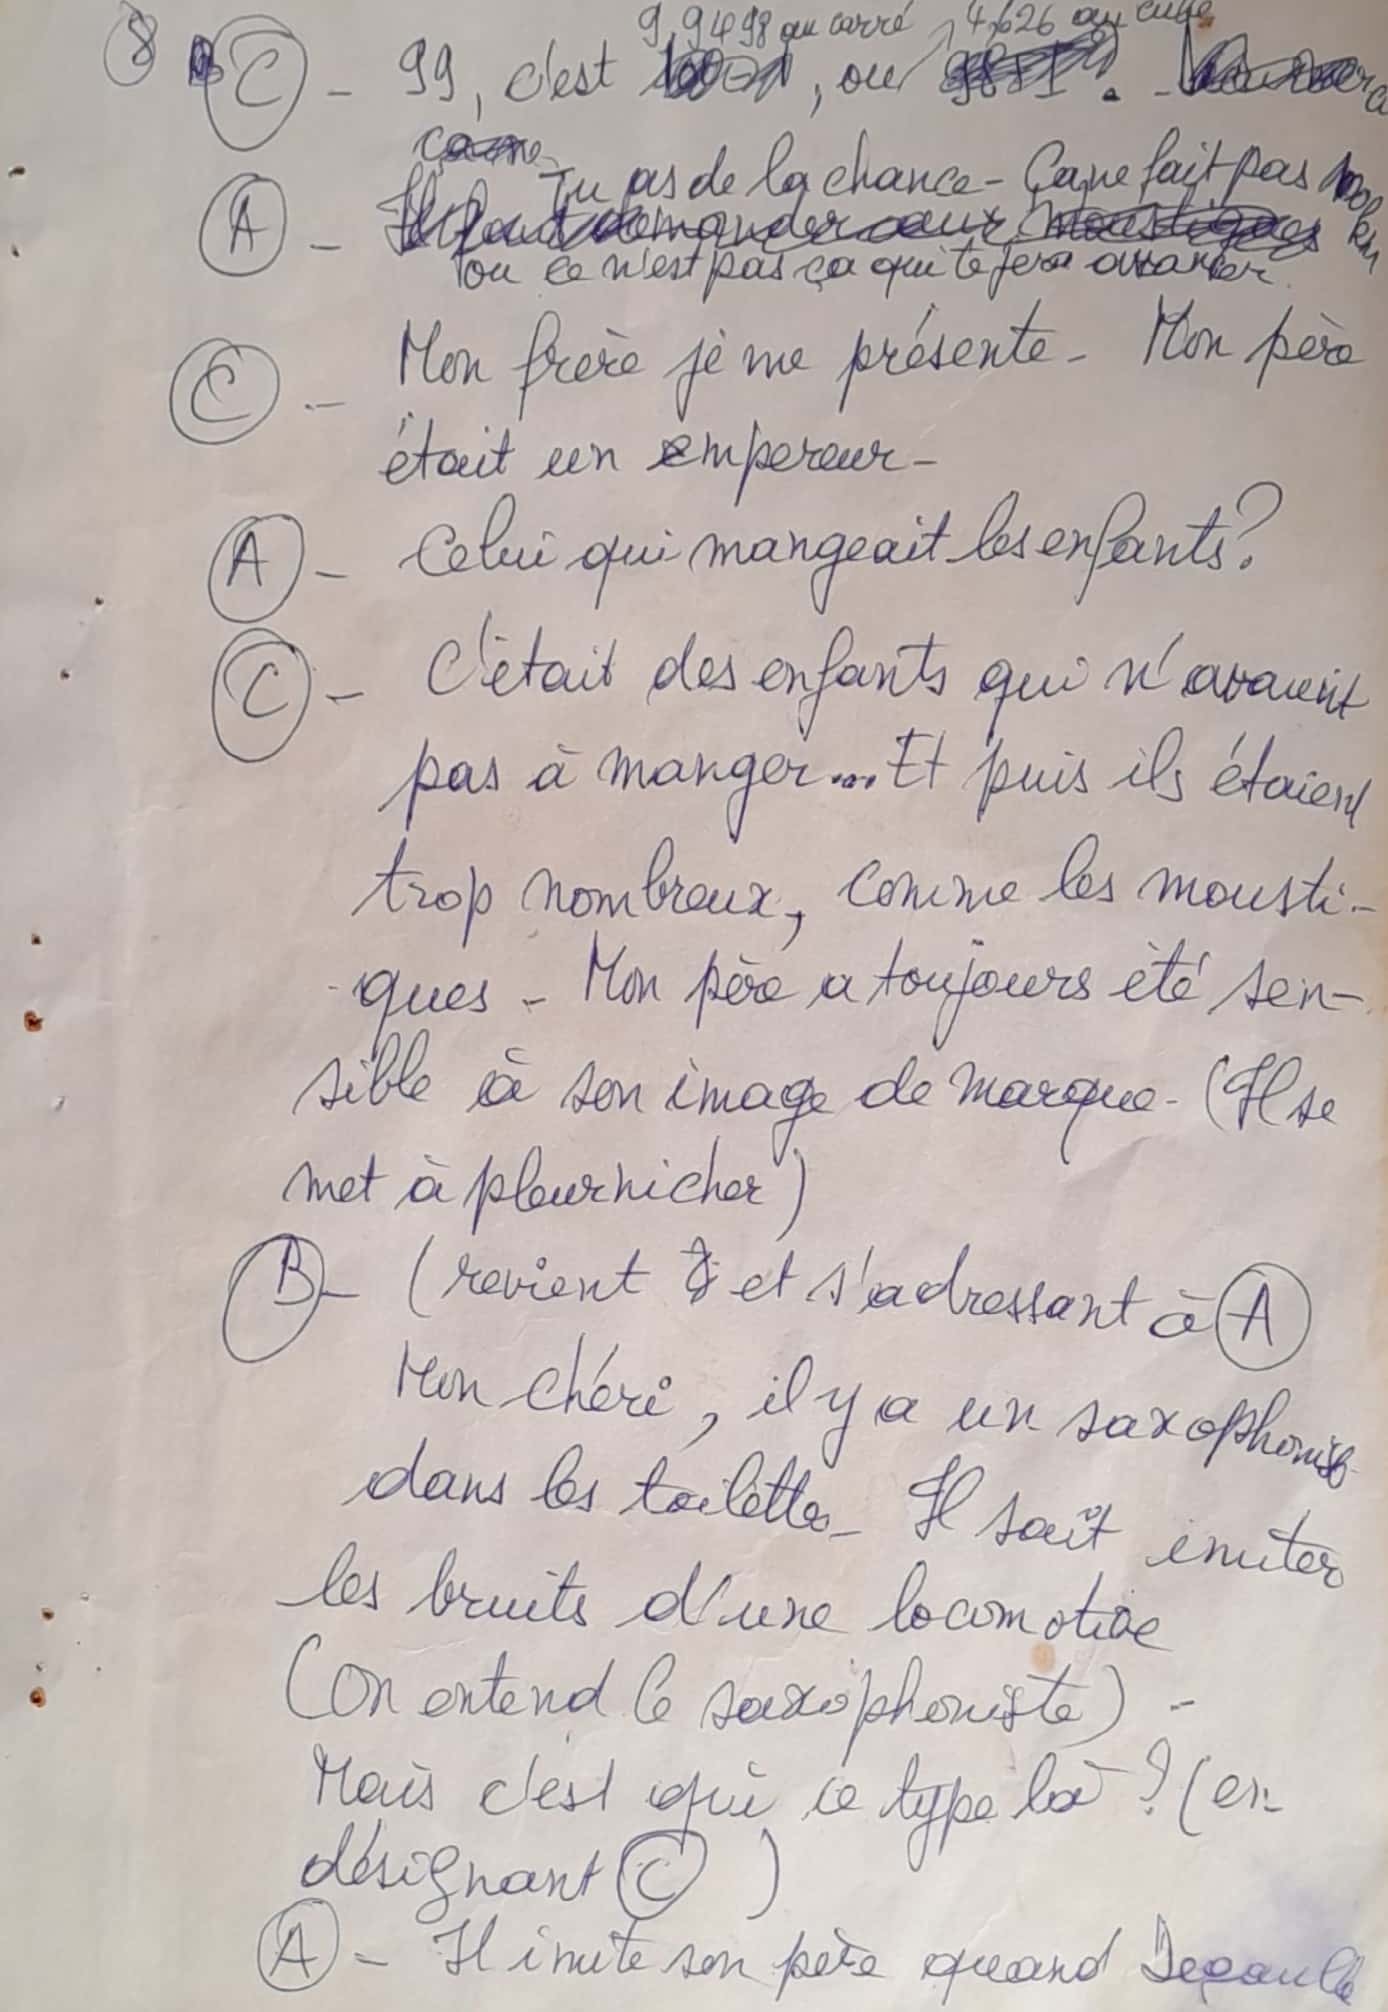 9,9498 au carré, 4,626 au cube
8 C - 99, c'est , ou .
A - Tu as de la chance - Ca ne fait pas
Il faut demander aux moustiques km
ou ce n'est pas ça qui te fera avancer.
C - Mon frère je me présente - Mon père
était un empereur -
A - Celui qui mangeait les enfants?
C - C'était des enfants qui n'avaient
pas à manger... Et puis ils étaient
trop nombreux, comme les mousti-
ques - Mon père a toujours été sen-
sible à son image de marque - (Il se
met à pleurnicher)
B - (revient et s'adressant à A
Mon chéri, il y a un saxophoniste
dans les toilettes - Il sait imiter
les bruits d'une locomotive
(On entend le saxophoniste) -
Mais c'est qui ce type là ? (en
désignant C )
A - Il imite son père quand Degaulle